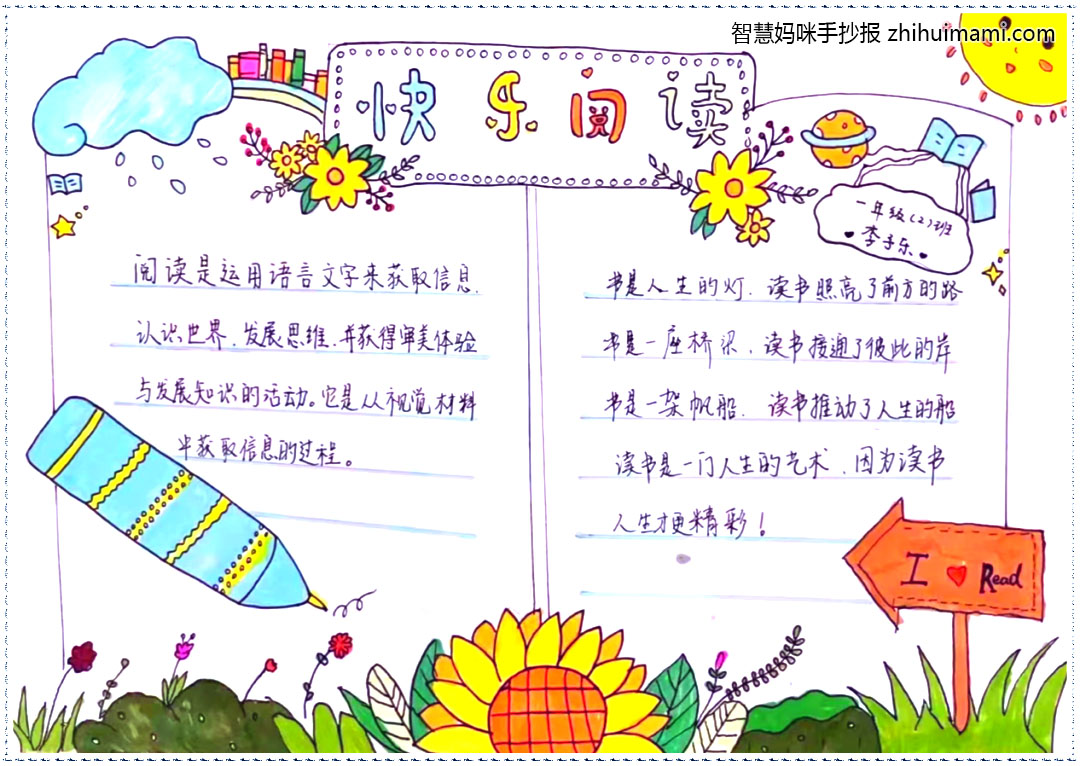 智慧妈咪手抄报 zhihuimami.com
快乐阅读
一年级(2)班
李子乐
阅读是运用语言文字来获取信息.
认识世界、发展思维、并获得审美体验
与发展知识的活动。它是从视觉材料
中获取信息的过程。
书是人生的灯、读书照亮了前方的路
书是一座桥梁、读书接通了彼此的岸
书是一架帆船、读书推动了人生的船
读书是一门人生的艺术、因为读书
人生才更精彩！
I ♥ Read